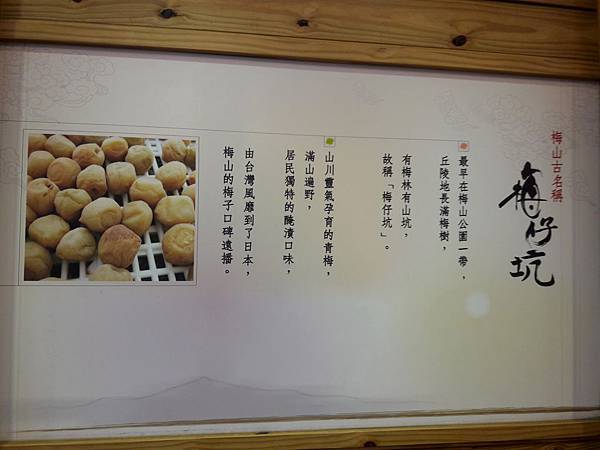 梅山古名稱
梅仔坑
最早在梅山公園一帶，
丘陵地長滿梅樹，
有梅林有山坑，
故稱「梅仔坑」。
山川靈氣孕育的青梅，
滿山遍野，
居民獨特的醃漬口味，
由台灣風靡到了日本，
梅山的梅子口碑遠播。